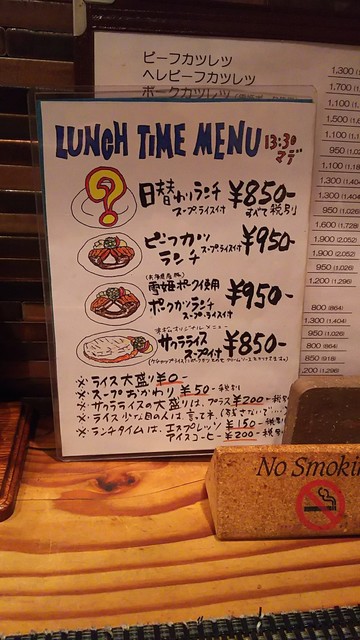 ビーフカツレツ
ヘレビーフカツレツ
ポークカツレツ
LUNCH TIME MENU 13:30マデ
日替わりランチ ¥850-
スープライス付 すべて税別
ビーフカツランチ スープライス付 ¥950-
(兵庫県産豚)
雪姫ポーク使用
ポークカツランチ ¥950-
スープ・ライス付
オリジナルメニュー
サクラライス ¥850-
スープ付
※ライス大盛り¥0-
※スープおかわり ¥50-税別
※サクラライスの大盛りは、プラス¥200-税別
※ライス少な目の人は、言って下
※ランチタイムは、エスプレッソ ¥150-税別
アイスコーヒー ¥200-税別
1,300
1,700
1,100
1,500
1,100
950
1,100
1,300
1,300
1,600
1,900 (2,052)
1,900 (2,052)
950 (1,026)
1,200 (1,296)
800 (864)
1,300 (1,404)
950 (1,026)
800 (864)
850 (918)
1,200
No Smoki